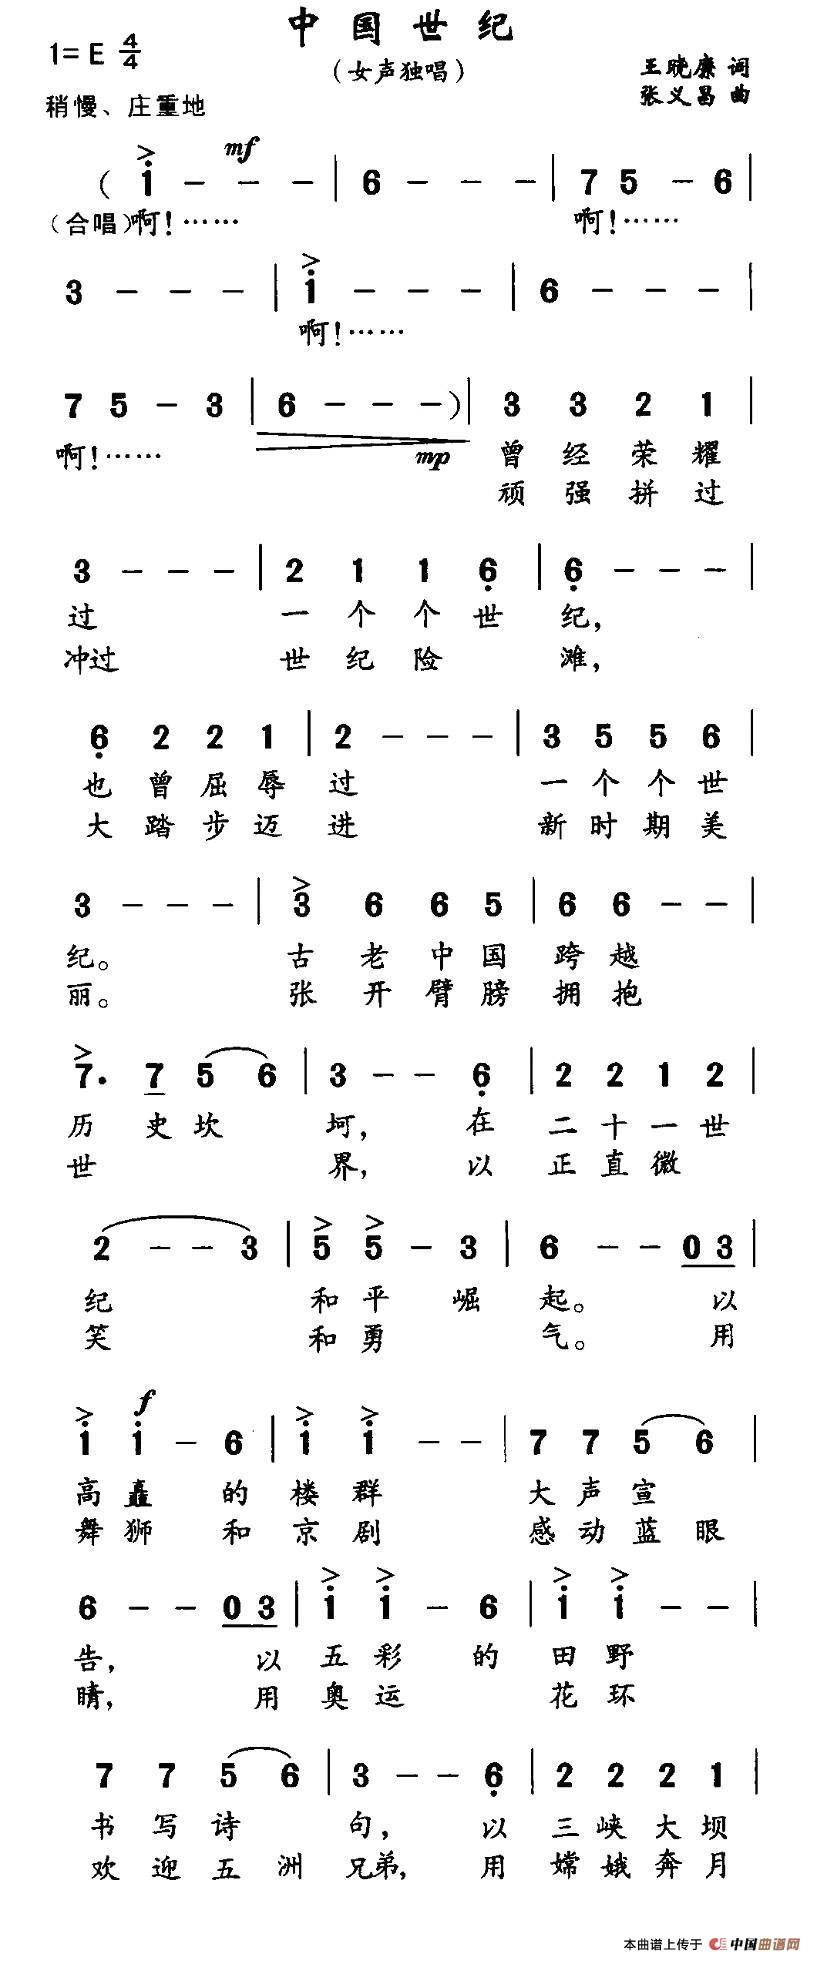 中国世纪
1=E 4/4
（女声独唱）
王晓廉 词
张义昌 曲
稍慢、庄重地
mf
( i - - - | 6 - - - | 7 5 - 6 |
（合唱）啊！…… 啊！……
3 - - - | i - - - | 6 - - - |
啊！……
7 5 - 3 | 6 - - - ) | 3 3 2 1 |
啊！…… mp 曾经荣耀
顽强拼过
3 - - - | 2 1 1 6 | 6 - - - |
过 一个个世纪，
冲过 世纪险滩，
6 2 2 1 | 2 - - - | 3 5 5 6 |
也曾屈辱过 一个个世
大踏步迈进 新时期美
3 - - - | 3 6 6 5 | 6 6 - - |
纪。 古老中国跨越
丽。 张开臂膀拥抱
7. 7 5 6 | 3 - - 6 | 2 2 1 2 |
历史坎坷，在二十一世
世界，以正直微
2 - - 3 | 5 5 - 3 | 6 - - 0 3 |
纪 和平崛起。以
笑 和勇气。用
f
i i - 6 | i i - - | 7 7 5 6 |
高矗的楼群 大声宣
舞狮和京剧 感动蓝眼
6 - - 0 3 | i i - 6 | i i - - |
告，以五彩的田野
睛，用奥运花环
7 7 5 6 | 3 - - 6 | 2 2 2 1 |
书写诗句，以三峡大坝
欢迎五洲兄弟，用嫦娥奔月
本曲谱上传于 中国曲谱网